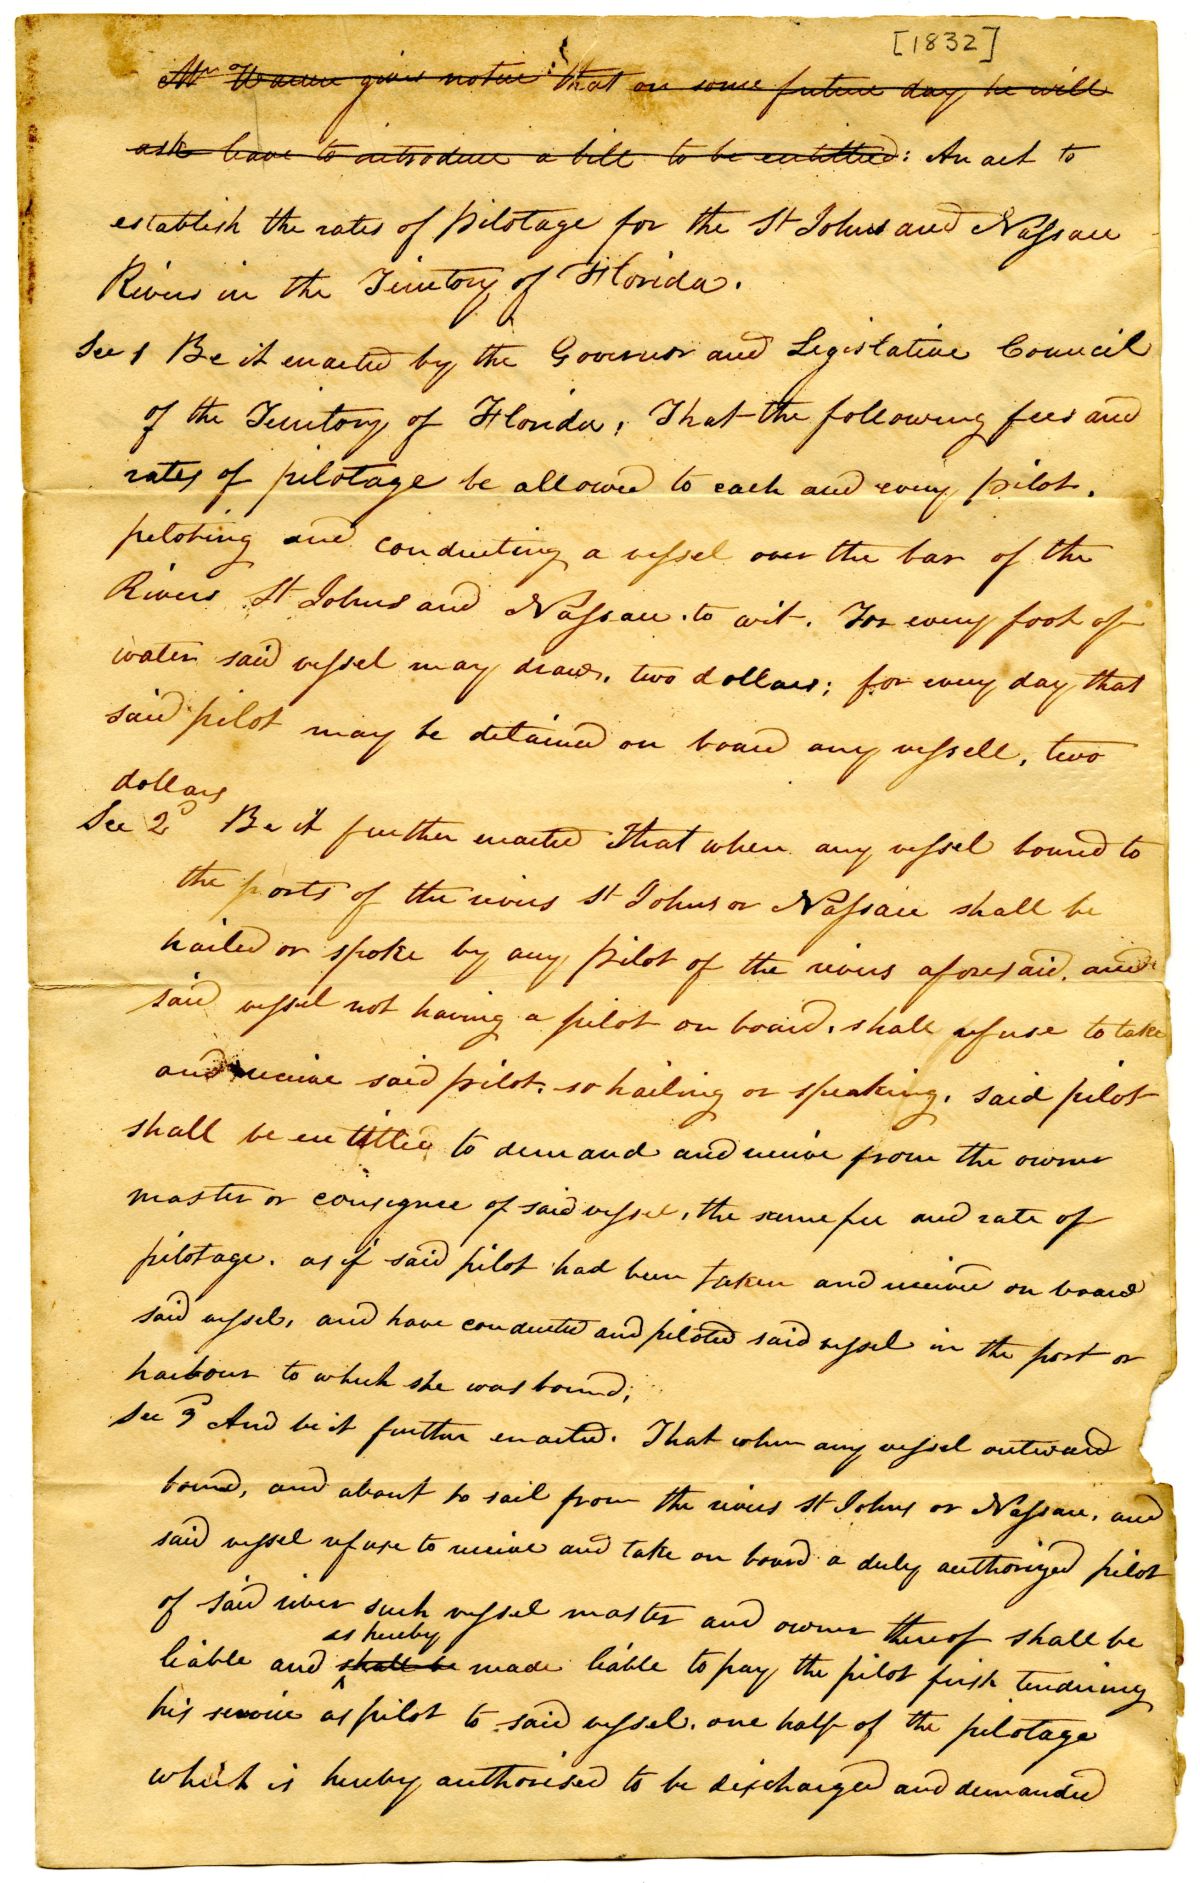 [1832]
Mr Warren gives notice: that on some future day he will
ask leave to introduce a bill to be entitled: An act to
establish the rates of pilotage for the St Johns and Nassau
Rivers in the Territory of Florida.
Sec 1 Be it enacted by the Governor and Legislative Council
of the Territory of Florida, That the following fees and
rates of pilotage be allowed to each and every pilot,
piloting and conducting a vessel over the bar of the
Rivers St Johns and Nassau. to wit. For every foot of
water said vessel may draw, two dollars; for every day that
said pilot may be detained on board any vessell, two
dollars
Sec 2d Be it further enacted That when any vessel bound to
the ports of the rivers St Johns or Nassau shall be
hailed or spoke by any pilot of the rivers aforesaid, and
said vessel not having a pilot on board, shall refuse to take
and receive said pilot, so hailing or speaking, said pilot
shall be entitled to demand and receive from the owner
master or consignee of said vessel, the same fee and rate of
pilotage. as if said pilot had been taken and receive on board
said vessel, and have conducted and piloted said vessel in the port or
harbour to which she was bound;
Sec 3d And be it further enacted. That when any vessel outward
bound, and about to sail from the rivers St Johns or Nassau, and
said vessel refuse to receive and take on board a duly authorized pilot
of said river such vessel master and owner thereof shall be
is hereby
liable and shall be made liable to pay the pilot first tendering
his service as pilot to said vessel, one half of the pilotage
which is hereby authorised to be discharged and demanded